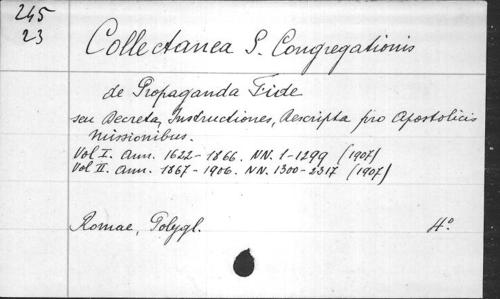 245
23
Collectanea S. Congregationis
de Propaganda Fide
seu Decreta, Instructiones, Rescripta pro Apostolicis
missionibus.
Vol I. Ann. 1622-1866. NN. 1-1299 (1907)
Vol II. Ann. 1867-1906. NN. 1300-2317 (1907)
Romae, Polygl. 4º